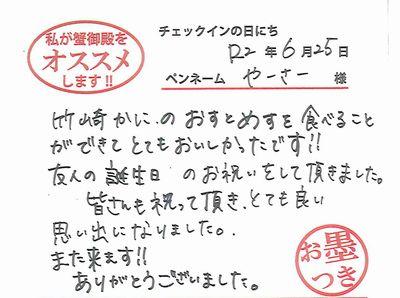 私が蟹御殿を
オススメ
します!!
チェックインの日にち
R2年6月25日
ペンネーム やーさー 様
竹崎かに.のおすとめすを食べること
ができてとてもおいしかったです!!
友人の誕生日のお祝いをして頂きました。
皆さんも祝って頂き、とても良い
思い出になりました。
また来ます!!
ありがとうございました。
お墨
つき